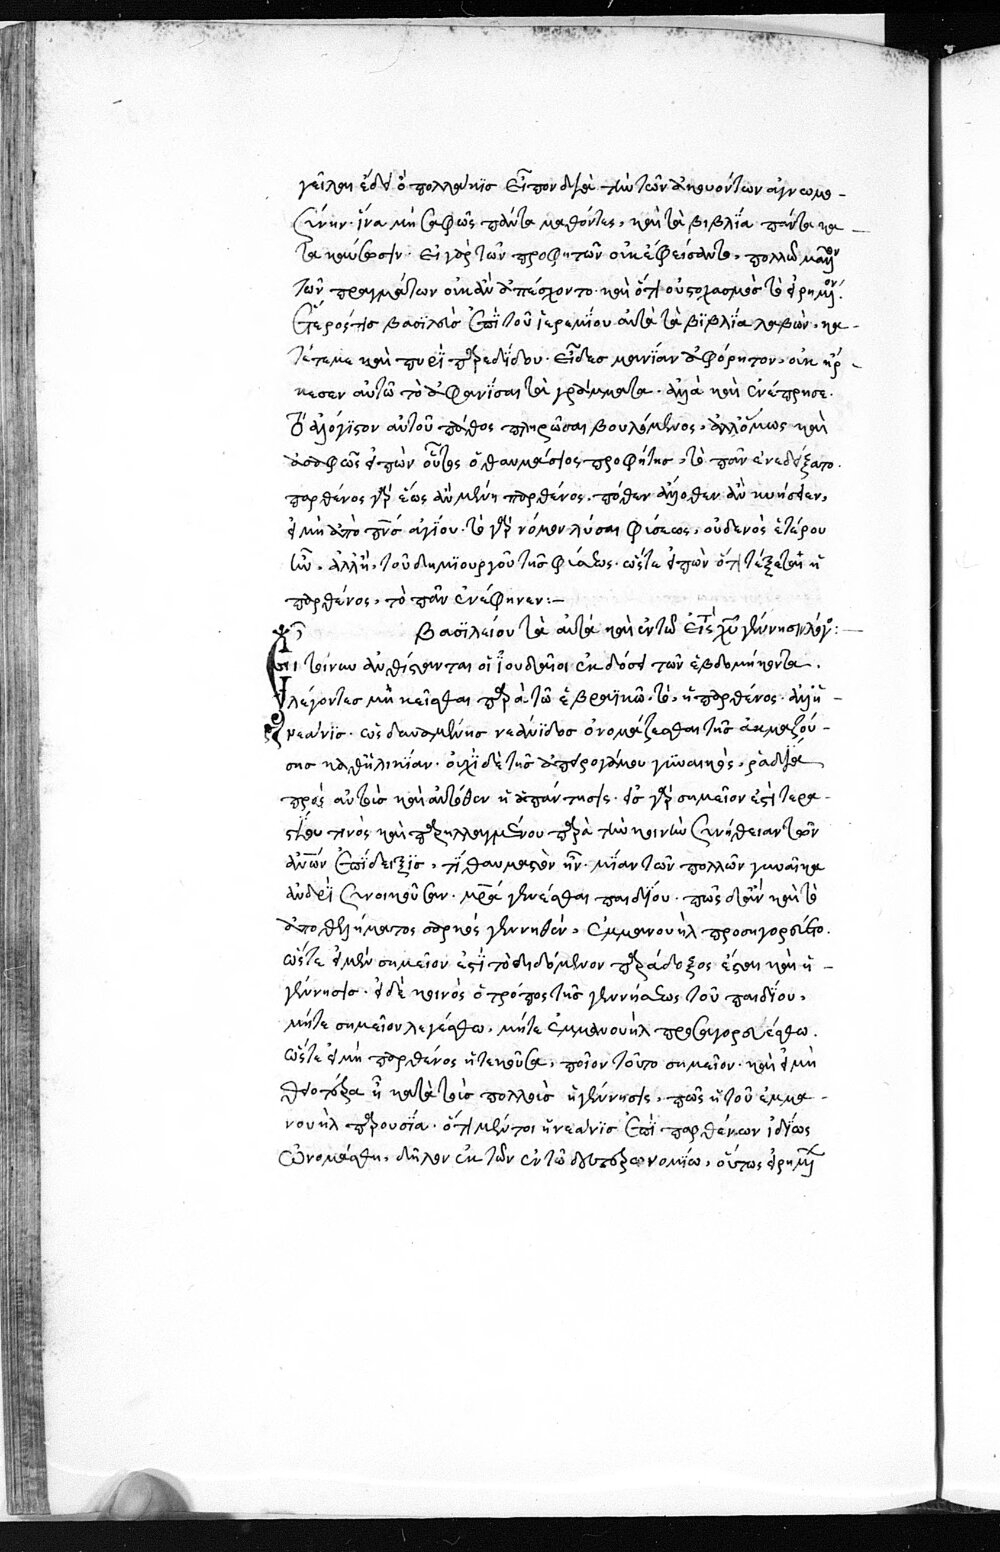 γεῖλαι ἔδει ὃ πολλάκις εἶπον διὰ τὴν τῶν ἀκουόντων ἀγνωμο-
σύνην· ἵνα μὴ σαφῶς πάντα μαθόντες, καὶ τὰ βιβλία πάντα κα
τακαύσωσιν· εἰ γὰρ τῶν προφητῶν οὐκ ἐφείσαντο, πολλῷ μᾶλλον
τῶν γραμμάτων οὐκ ἂν ἀπέσχοντο· καὶ ὅτι οὐ στοχασμὸς τὸ εἰρημένον·
ἕτερός τις βασιλεὺς ἐπὶ τοῦ ἱερεμίου αὐτὰ τὰ βιβλία λαβὼν, κα-
τέτεμε καὶ πυρὶ παρεδίδου· εἶδες μανίαν ἀφόρητον, οὐκ ἤρ-
κεσεν αὐτῶ τὸ ἀφανίσαι τὰ γράμματα· ἀλλὰ καὶ ἐνέπρησε·
τὸ ἀλόγιστον αὐτοῦ πάθος πληρῶσαι βουλόμενος, ἀλλ' ὅμως καὶ
ἀσαφῶς εἰπὼν οὗτος ὁ θαυμάσιος προφήτης, τὸ πᾶν ἐνεδείξατο·
παρθένος γὰρ ἕως ἂν μένῃ παρθένος, πόθεν ἄλλοθεν ἂν κυήσειεν,
εἰ μὴ ἀπὸ πνς ἁγίου· τὸ γὰρ νόμον λῦσαι φύσεως, οὐδενὸς ἑτέρου
ἦν, ἀλλ' ἢ, τοῦ δημιουργοῦ τῆς φύσεως· ὥστε εἰπὼν ὅτι τέξεται ἡ
παρθένος, τὸ πᾶν ἐνέφηνεν:—
Βασιλείου τὰ αὐτὰ καὶ ἐν τῶ εἰς τὴν χυ γέννησιν λόγω:—
Ἐπι τοίνυν ἀνθίστανται οἱ ἰουδαῖοι ἐκδόσει τῶν ἑβδομήκοντα,
λέγοντες μὴ κεῖσθαι παρὰ τῶ ἑβραϊκῶ, τὸ, ἡ παρθένος· ἀλλ' ἡ-
νεάνις· ὡς δυναμένης νεάνιδος ὀνομάζεσθαι τῆς ἀκμαζού-
σης καθ' ἡλικίαν· οὐχὶ δὲ τῆς ἀπειρογάμου γυναικὸς, ῥαδία
πρὸς αὐτοὺς καὶ αὐτόθεν ἡ ἀπάντησις· εἰ γὰρ σημεῖον ἐστὶ τερα-
στίου τινὸς καὶ παρηλλαγμένου παρὰ τὴν κοινὴν συνήθειαν τῶν
ἀνων ἐπίδειξις, τί θαυμαστὸν ἦν· μίαν τῶν πολλῶν γυναῖκα
ἀνδρὶ συνοικοῦσαν· μρα γενέσθαι παιδίου· πῶς δ' ἂν καὶ τὸ
ἀπὸ θελήματος σαρκὸς γεννηθὲν, ἐμμανουὴλ προσηγορεύετο·
ὥστε εἰ μὲν σημεῖον ἐστὶ τὸ διδόμενον παράδοξος ἔσται καὶ ἡ-
γέννησις· εἰ δὲ κοινὸς ὁ τρόπος τῆς γεννήσεως τοῦ παιδίου,
μήτε σημεῖον λεγέσθω, μήτε ἐμμανουὴλ προσαγορευέσθω·
ὥστε εἰ μὴ παρθένος ἡ τεκοῦσα, ποῖον τοῦτο σημεῖον· καὶ εἰ μὴ
θειοτέρα ἢ κατὰ τοὺς πολλοὺς ἡ γέννησις, πῶς ἡ τοῦ ἐμμα-
νουὴλ παρουσία· ὅτι μέντοι ἡ νεάνις ἐπὶ παρθένων ἰδίως
ὠνομάσθη, δῆλον ἐκ τῶν ἐν τῶ δευτερονομίω, οὕτως εἰρημένων